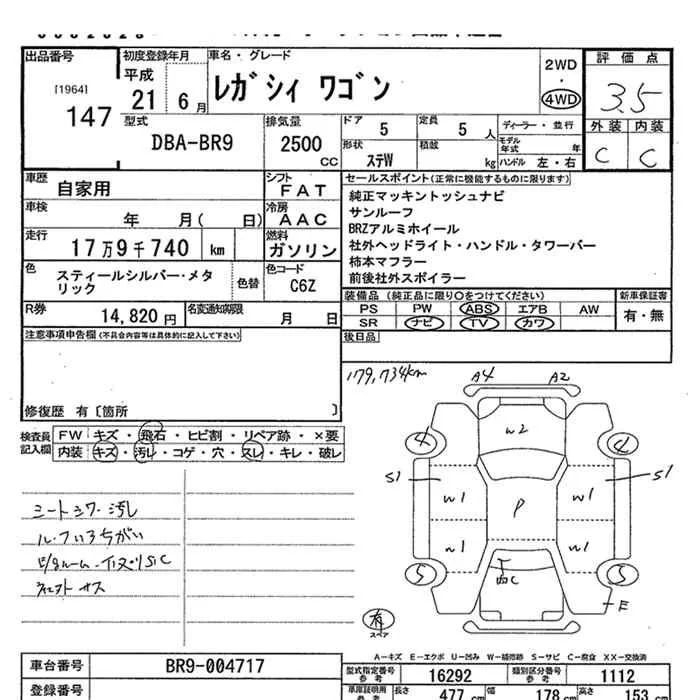 出品番号 初度登録年月 車名・グレード 2WD 評価点
[1964] 平成 レガシィ ワゴン ・
147 21 6 月 4WD 3.5
型式 排気量 ドア 定員 ディーラー・並行 外装 内装
DBA-BR9 2500 CC 5 5 人 モデル年式 年 C C
形状 積載
ステW kg ハンドル 左・右
車歴 シフト セールスポイント(正常に機能するものに限ります)
自家用 FAT 純正マッキントッシュナビ
車検 冷房 サンルーフ
年 月( 日) AAC BRZアルミホイール
走行 燃料 社外ヘッドライト・ハンドル・タワーバー
17万9千740 km ガソリン 柿本マフラー
色 色コード 前後社外スポイラー
スティールシルバー・メタリック 色替 C6Z 装備品(純正品に限り○をつけてください) 新車保証書
R券 名変通知期限 PS PW ABS エアB AW 有・無
14,820 円 月 日 SR ナビ TV カワ
注意事項申告欄(不具合内容等は具体的に記入して下さい) 後日品
179,734km
修復歴 有〔箇所 〕
検査員記入欄 FW キズ・飛石・ヒビ割・リペア跡・×要
内装 キズ・汚レ・コゲ・穴・スレ・キレ・破レ
シートシワ・汚レ
ル-フいろちがい
A4 A2
W2
4 4
S1 W1 P W1 S1
W1 W1
5 5
E
有
スペア
A-キズ E-エクボ U-凹み W-補修跡 S-サビ C-腐食 XX-交換済
車台番号 BR9-004717 型式指定番号 参考 16292 類別区分番号 参考 1112
登録番号 車庫証明用 参考 長さ 477 cm 幅 178 cm 高さ 153 cm